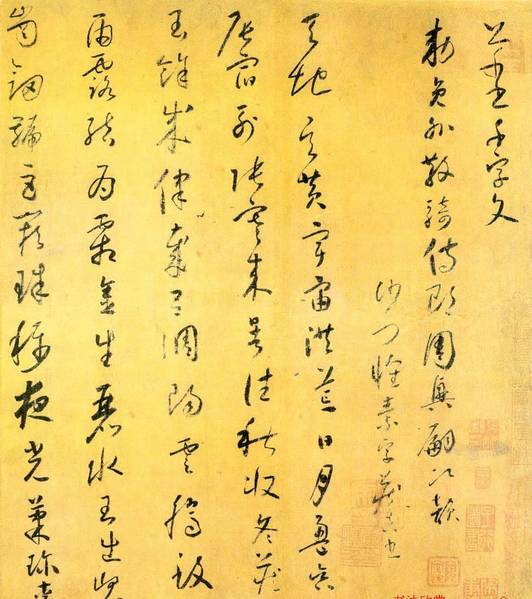 草書千字文
敕員外散騎侍郎周興嗣次韻
沙門懷素字藏真也
天地玄黃宇宙洪荒日月盈昃
辰宿列張寒來暑往秋收冬藏
閏餘成律歲呂調陽雲騰致
雨露結為霜金生麗水玉出崐
崗劍號巨闕珠稱夜光菓珍李